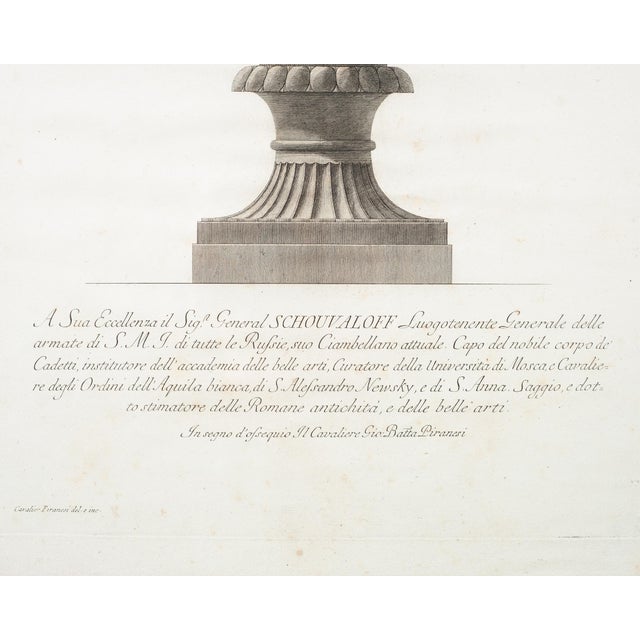 A Sua Eccellenza il Sig.ʳ General SCHOUVALOFF Luogotenente Generale delle
armate di S. M. I. di tutte le Rußie, suo Ciambellano attuale. Capo del nobile corpo de'
Cadetti, institutore dell'accademia delle belle arti, Curatore della Università di Mosca, e Cavalie=
re degli Ordini dell'Aquila bianca, di S. Aleſsandro Newsky, e di S. Anna. Saggio, e dot=
to stimatore delle Romane antichità, e delle belle arti.
In segno d'oſsequio Il Cavaliere Gio: Batta Piranesi
Cavalier Piranesi del. e inc.